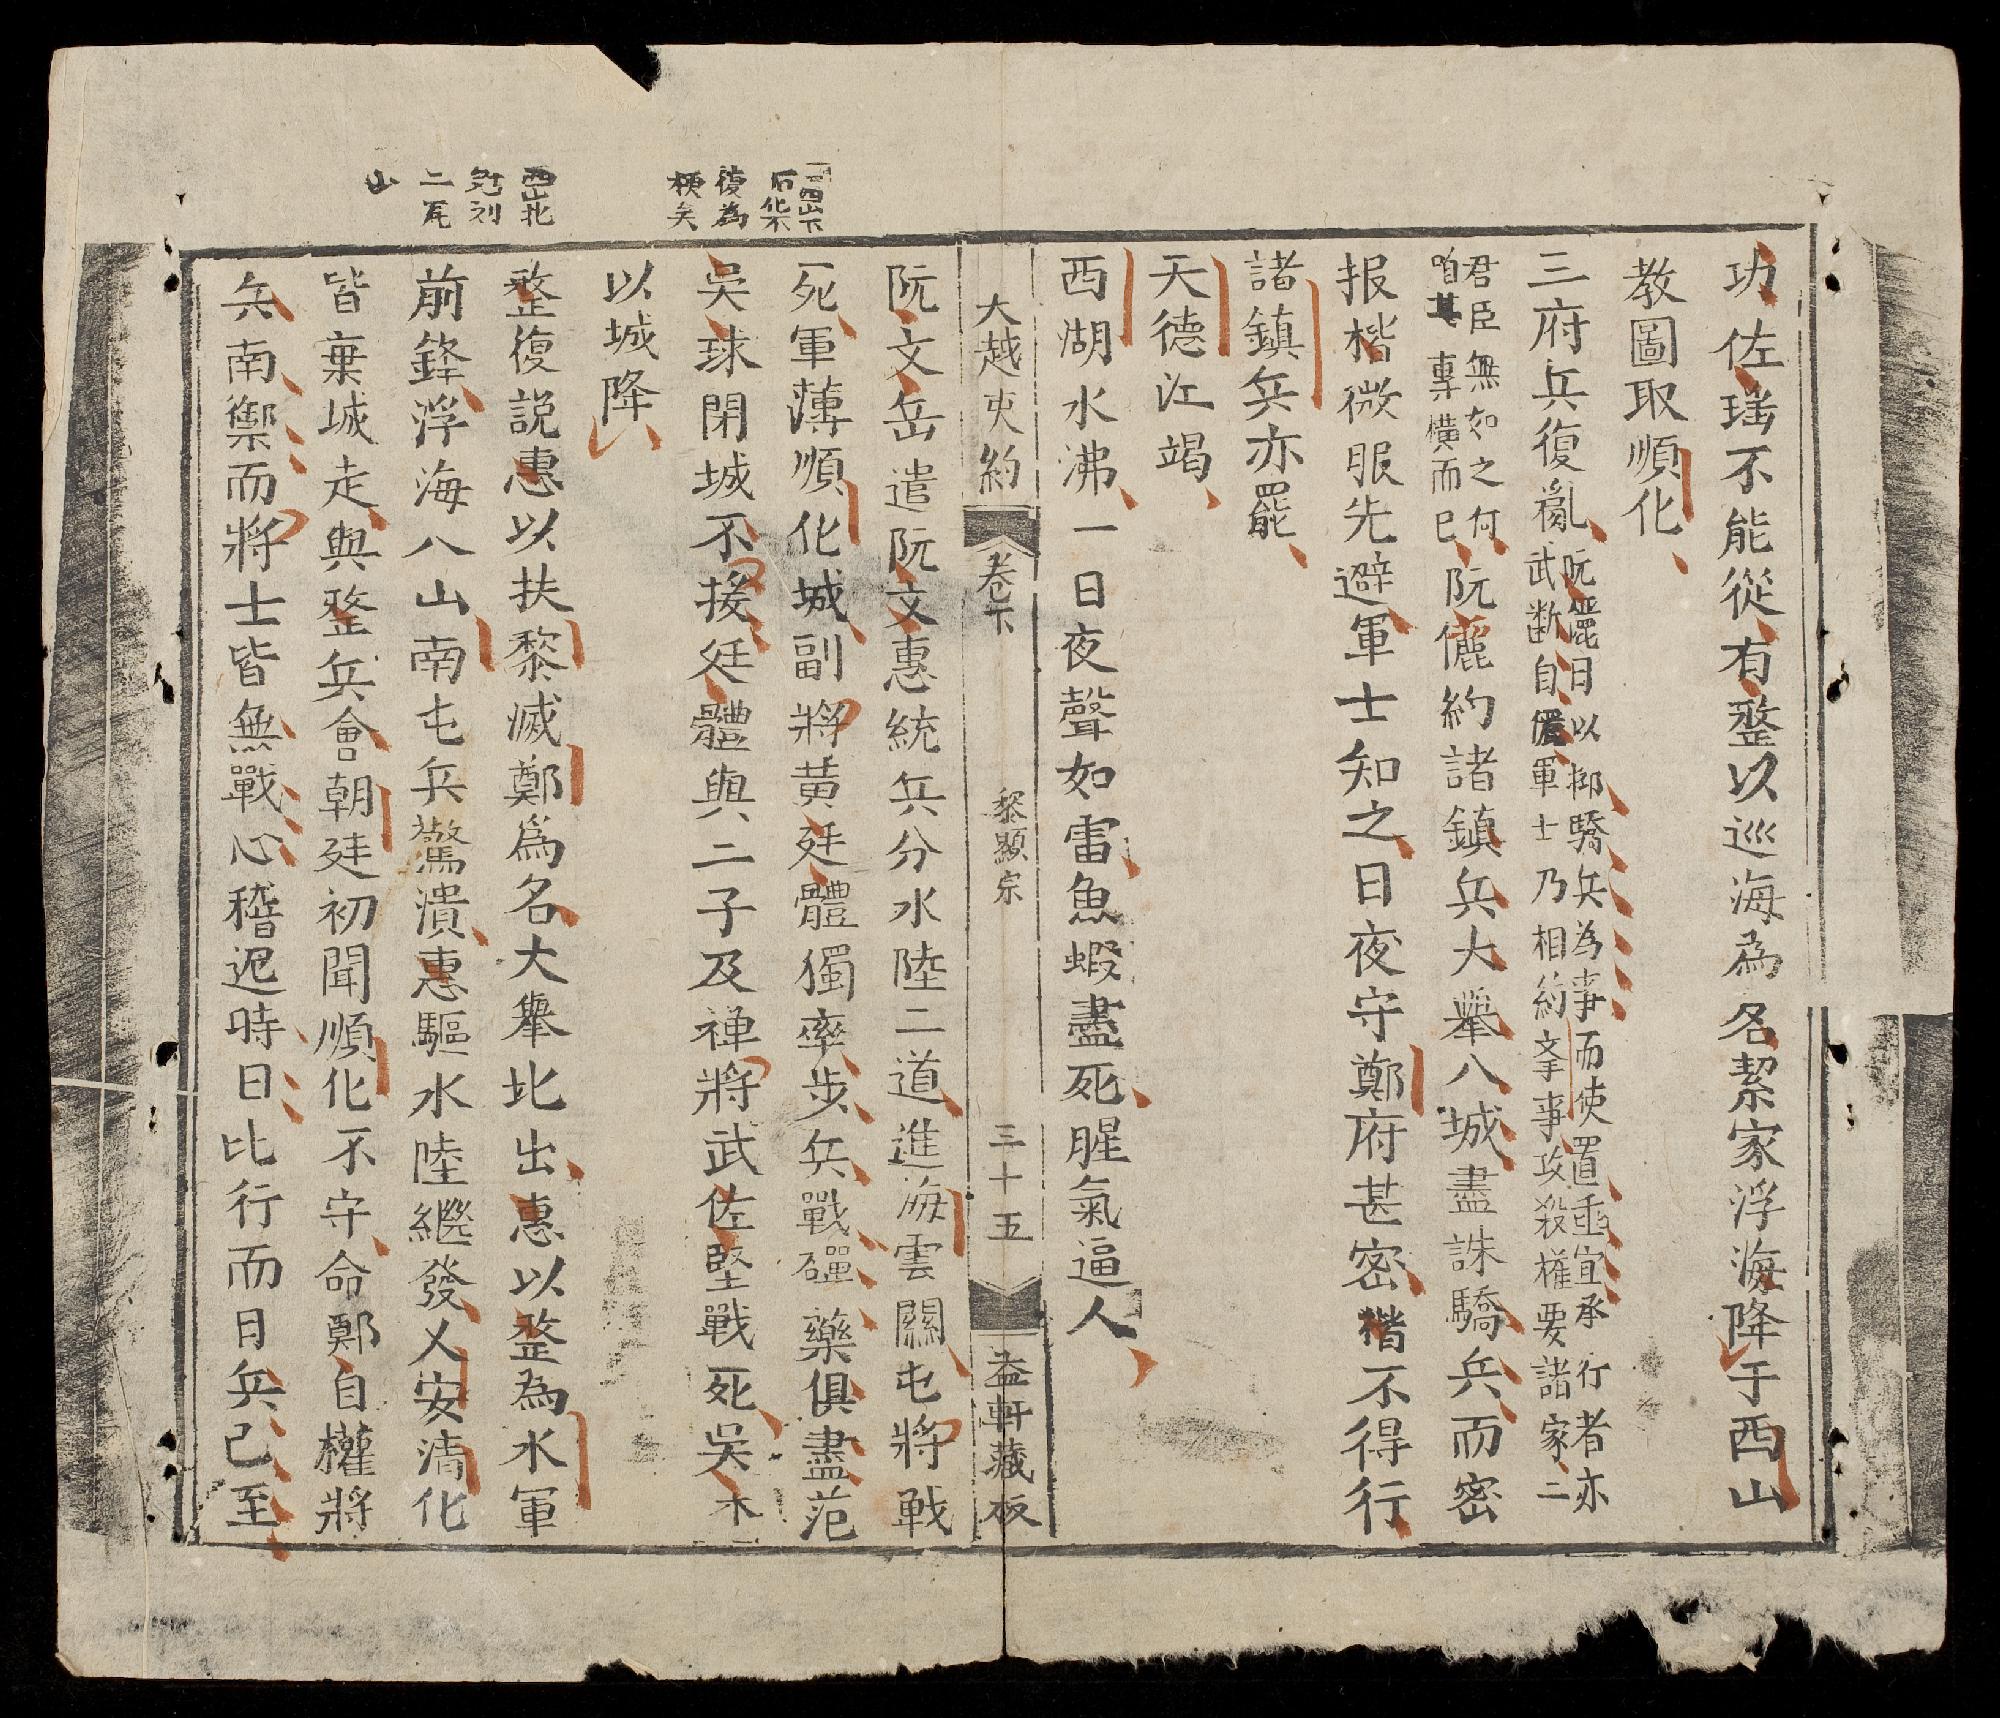 功佐瑤不能從有整以巡海為名絜家浮海降于西山
教圖取順化
三府兵復亂
阮儷日以抑驕兵為事而使置亟宜承行者亦
武斷自儇軍士乃相約拿事攻殺權要諸家二
君臣無如之何
咱其專橫而已
阮儷約諸鎮兵大舉入城盡誅驕兵而密
报楷微服先避軍士知之日夜守鄭府甚密楷不得行
諸鎮兵亦罷
天德江竭
西湖水沸一日夜聲如雷魚蝦盡死腥氣逼人
大越史約 卷下 黎顯宗 三十五 益軒藏板
阮文岳遣阮文惠統兵分水陸二道進海雲關屯將戰
死軍薄順化城副將黃廷體獨率步兵戰磾藥俱盡范
吳球閉城不援廷體與二子及裨將武佐堅戰死吳
以城降
整復説惠以扶黎滅鄭爲名大舉北出惠以整為水軍
前鋒浮海入山南屯兵驚潰惠驅水陸繼發乂安清化
皆棄城走與整兵會朝廷初聞順化不守命鄭自權將
兵南禦而將士皆無戰心稽迟時日比行而日兵已至
西山下
石化不
復為
梗矣
西山北
二
山